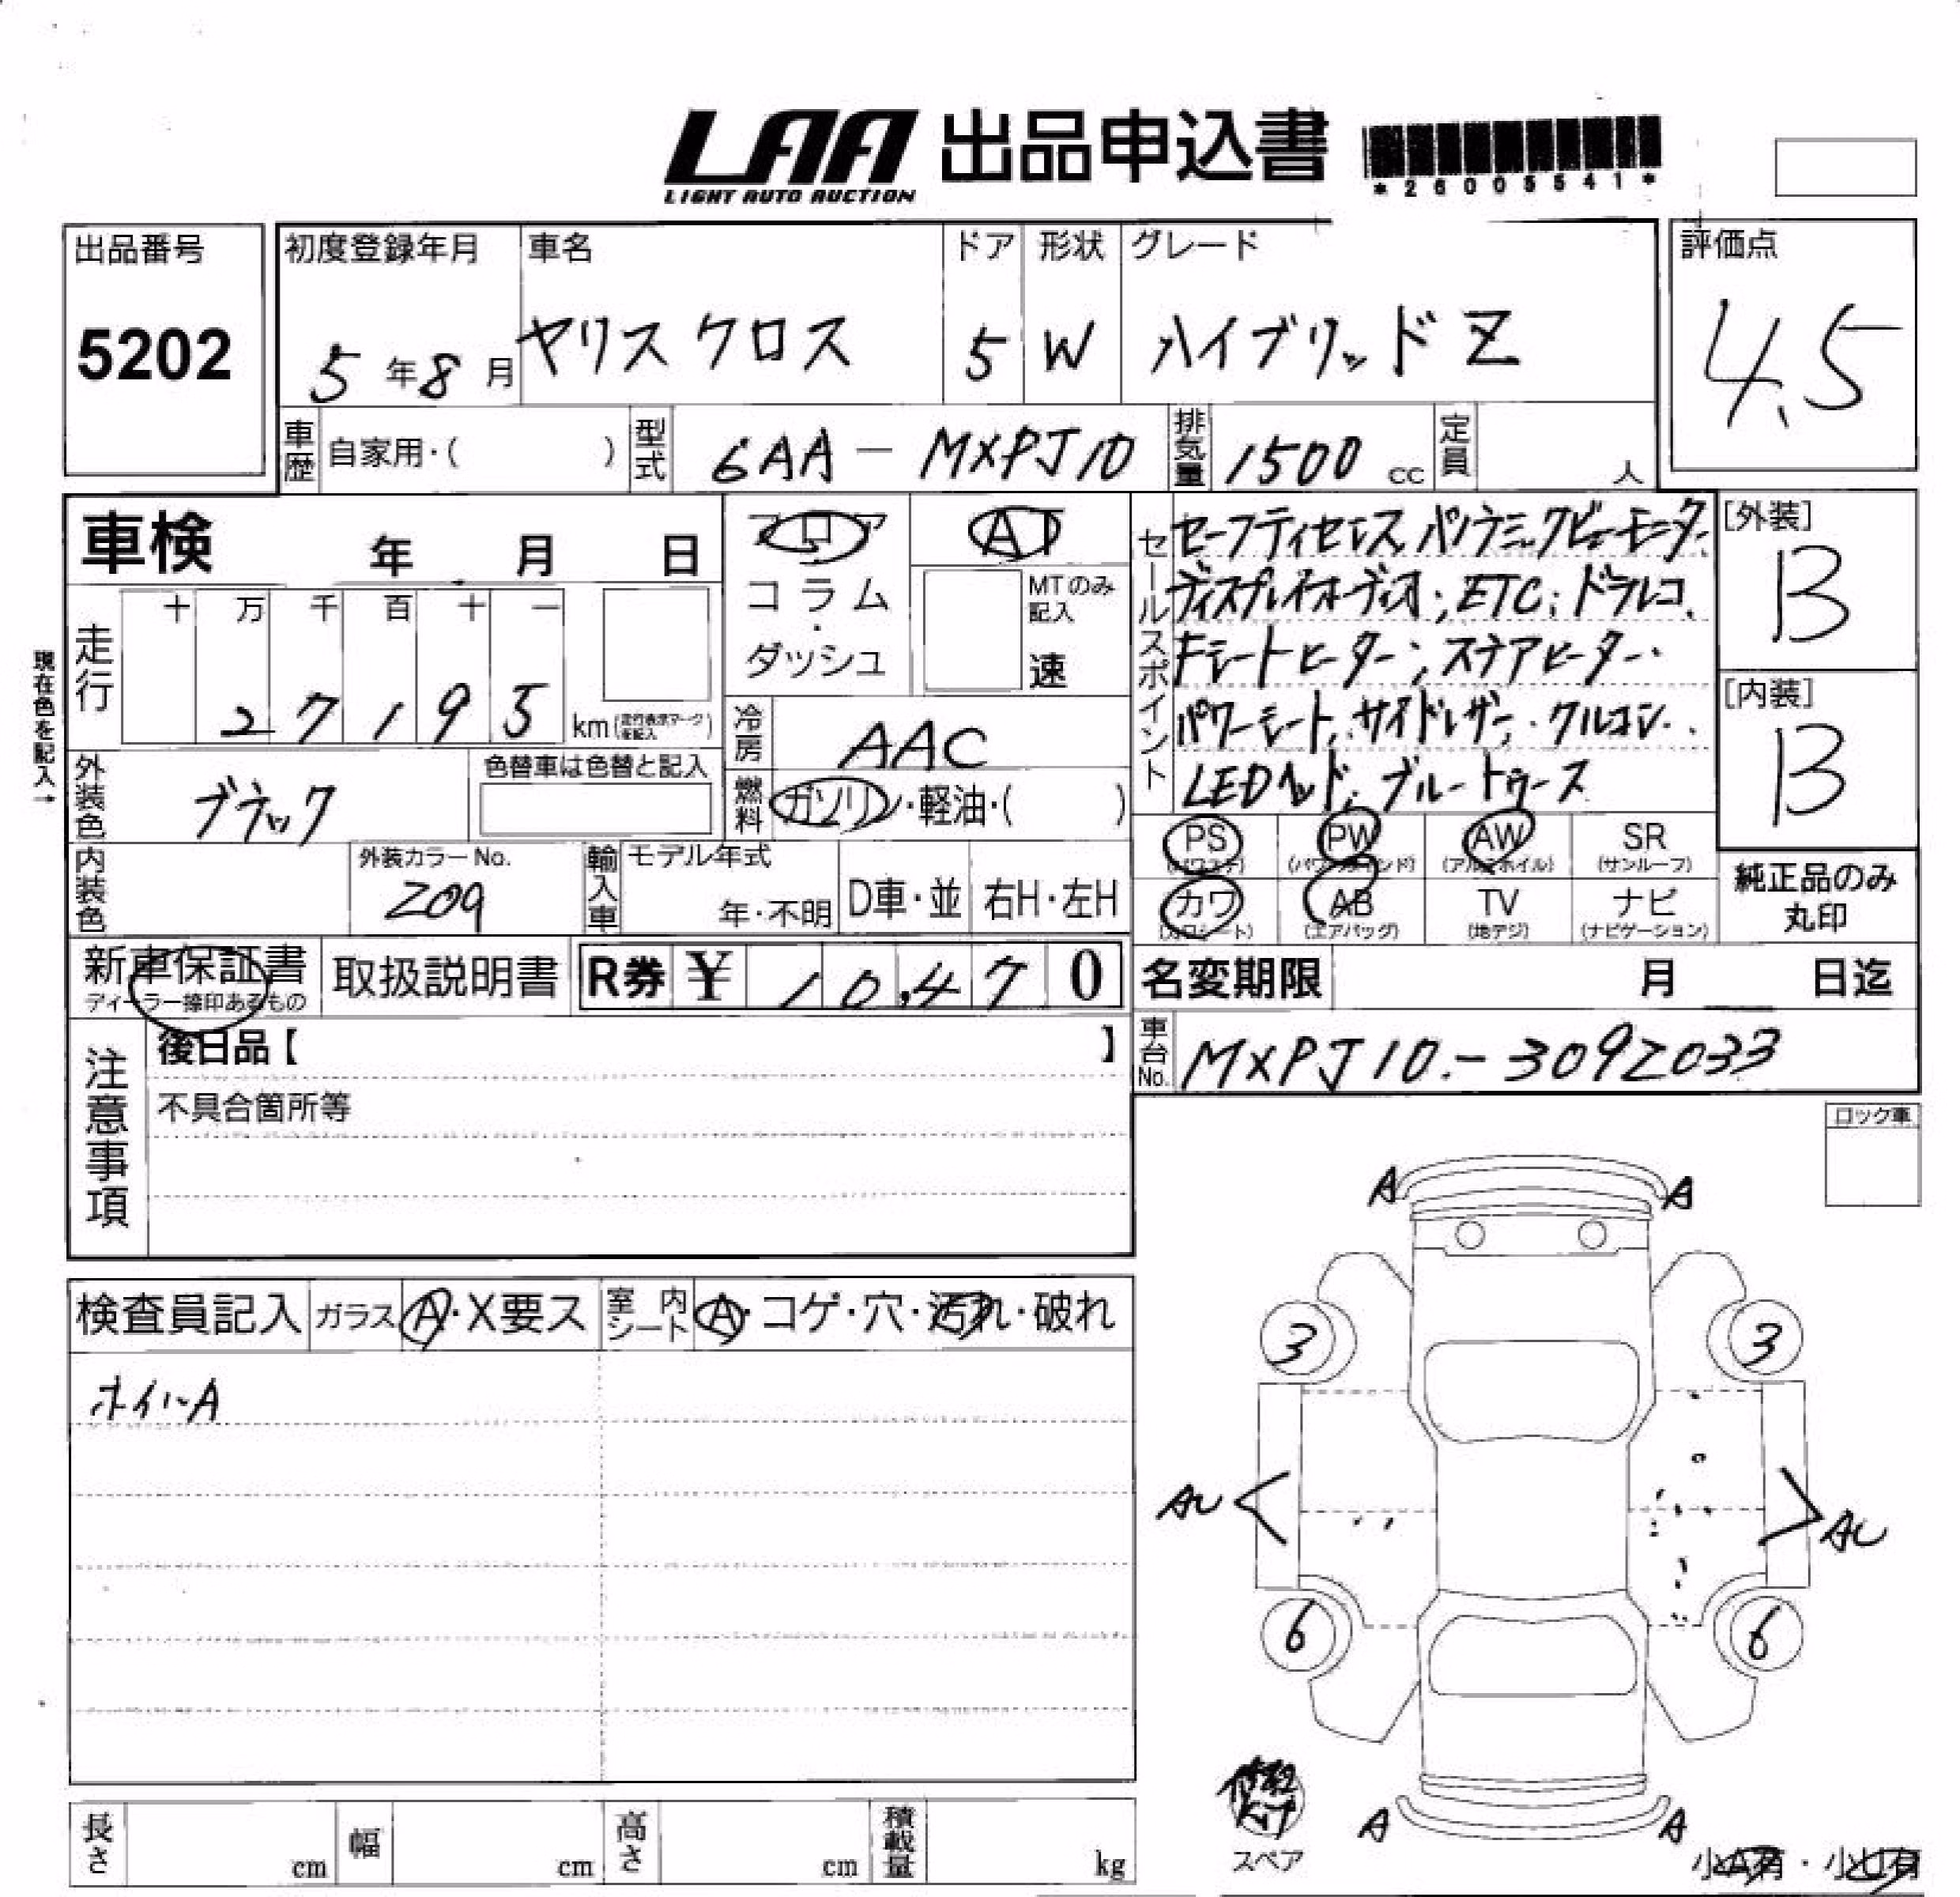 LAA 出品申込書
LIGHT AUTO AUCTION
*26005541*
出品番号
5202
初度登録年月
5年8月
車名
ヤリスクロス
ドア
5
形状
W
グレード
ハイブリッドZ
評価点
4.5
車歴 自家用・( )
型式 6AA-MXPJ10
排気量 1500 cc
定員 人
車検 年 月 日
フロア
コラム
・
ダッシュ
AT
MTのみ
記入
速
セールスポイント
セーフティセンス パノラミックビューモニター
ディスプレイオーディオ; ETC; ドラレコ
シートヒーター; ステアヒーター
パワーシート, サイドレザー・クルコン・
LEDヘッド, ブルートゥース
[外装]
B
[内装]
B
現在色を記入→
走行
十 万 千 百 十 一
2 7 1 9 5 km
冷房 AAC
燃料 ガソリン・軽油・( )
外装色 ブラック
色替車は色替と記入
内装色
外装カラーNo.
209
輸入車
モデル年式
年・不明
D車・並
右H・左H
PS PW AW SR
(パワステ) (パワーウインド) (アルミホイル) (サンルーフ)
カワ AB TV ナビ
(カワシート) (エアバッグ) (地デジ) (ナビゲーション)
純正品のみ
丸印
新車保証書
ディーラー捺印あるもの
取扱説明書
R券 ¥ 10,470
名変期限 月 日迄
注意事項
後日品【 】
不具合箇所等
車台No. MXPJ10-3092033
ロック車
検査員記入
ガラス A・X要ス
室内シート A・コゲ・穴・汚れ・破れ
ホイルA
A A
3 3
AU AU
6 6
A A
修理キット
スペア
小A有・小U有
長さ cm
幅 cm
高さ cm
積載量 kg